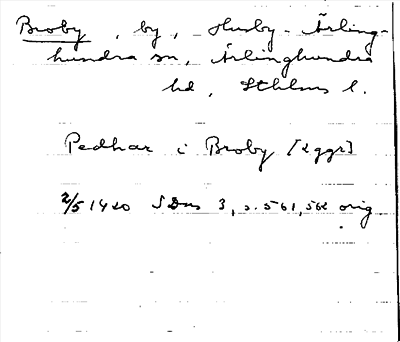 Broby, by, Husby-Ärling-
hundra sn, Ärlinghundra
hd, Sthlms l.
Pedhar i Broby [2 ggr]
2/5 1420 SDns 3, s. 561, 562 orig